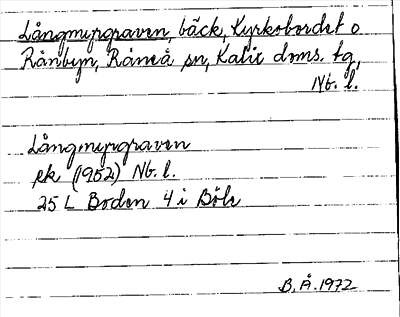 Långmyrgraven, bäck, Kyrkobordet o
Rånbyn, Råneå sn, Kalix doms. tg,
Nb. l.
Långmyrgraven
ek (1952) Nb. l.
25 L Boden 4 i Böle
B. Å. 1972